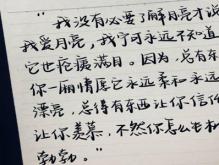 "我没有必要了解月亮才说
我爱月亮，我宁可永远不知道
它也疮痍满目。因为，总有东
你一厢情愿它永远柔和永远
漂亮，总得有东西让你信仰
让你羡慕，不然你怎么生机
勃勃。"